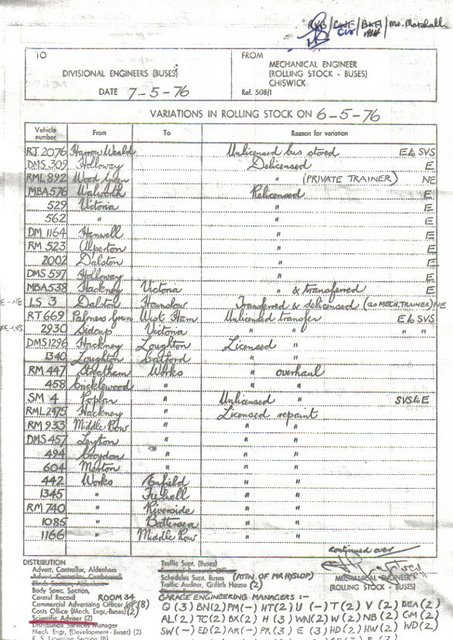 RWB/CWF/DAT/Mr. Marshall
TO
DIVISIONAL ENGINEERS (BUSES)
DATE 7-5-76
FROM
MECHANICAL ENGINEER
(ROLLING STOCK - BUSES)
CHISWICK
Ref. 508/1
VARIATIONS IN ROLLING STOCK ON 6-5-76
Vehicle number From To Reason for variation
RT 2076 Harrow Weald Unlicensed bus stored E to SVS
DMS 309 Holloway Delicensed E
RML 892 Wood Green " (PRIVATE TRAINER) NE
MBA 576 Walworth Relicensed E
529 Victoria " E
562 " " E
DM 1164 Hanwell " E
RM 523 Alperton " E
2002 Dalston " E
DMS 597 Holloway " E
MBA 538 Hackney Victoria " & transferred E
LS 3 Dalston Hounslow Transferred & delicensed (as MECH. TRAINER) NE
RT 669 Palmers Green West Ham Unlicensed transfer E to SVS
2930 Sidcup Victoria " " " "
DMS 1296 Hackney Loughton Licensed "
1340 Loughton Catford " "
RM 447 Streatham Works " overhaul
458 Cricklewood " " "
SM 4 Poplar " Unlicensed " SVS to E
RML 2475 Hackney " Licensed repaint
RM 933 Middle Row " " "
DMS 457 Leyton " " "
494 Croydon " " "
604 Merton " " "
442 Works Enfield " "
1345 " Tulwell " "
RM 740 " Riverside " "
1085 " Battersea " "
1166 " Middle Row " "
continued over
MECHANICAL ENGINEER
(ROLLING STOCK - BUSES)
DISTRIBUTION
Advert, Controller, Aldenham
Body Spec. Section,
Central Record ROOM 34
Commercial Advertising Officer (8)
Costs Office (Mech. Engr. Buses) (2)
Scientific Adviser (2)
Mech. Engr. (Development - Buses) (2)
Traffic Supt. (Buses)
Schedules Supt. Buses (MTN. OF MR HYSLOP)
Traffic Auditor, Griffith House (2)
GARAGE ENGINEERING MANAGERS :-
Q (3) BN(2) PM(-) HT(2) U (-) T(2) V (2) BEA(2)
AL(2) TC(2) BX(2) H (3) WN(2) W(2) NB(2) GM(2)
SW(-) ED(2) AR(-) PR(3) E (3) HD(2) HW(2) WD(2)